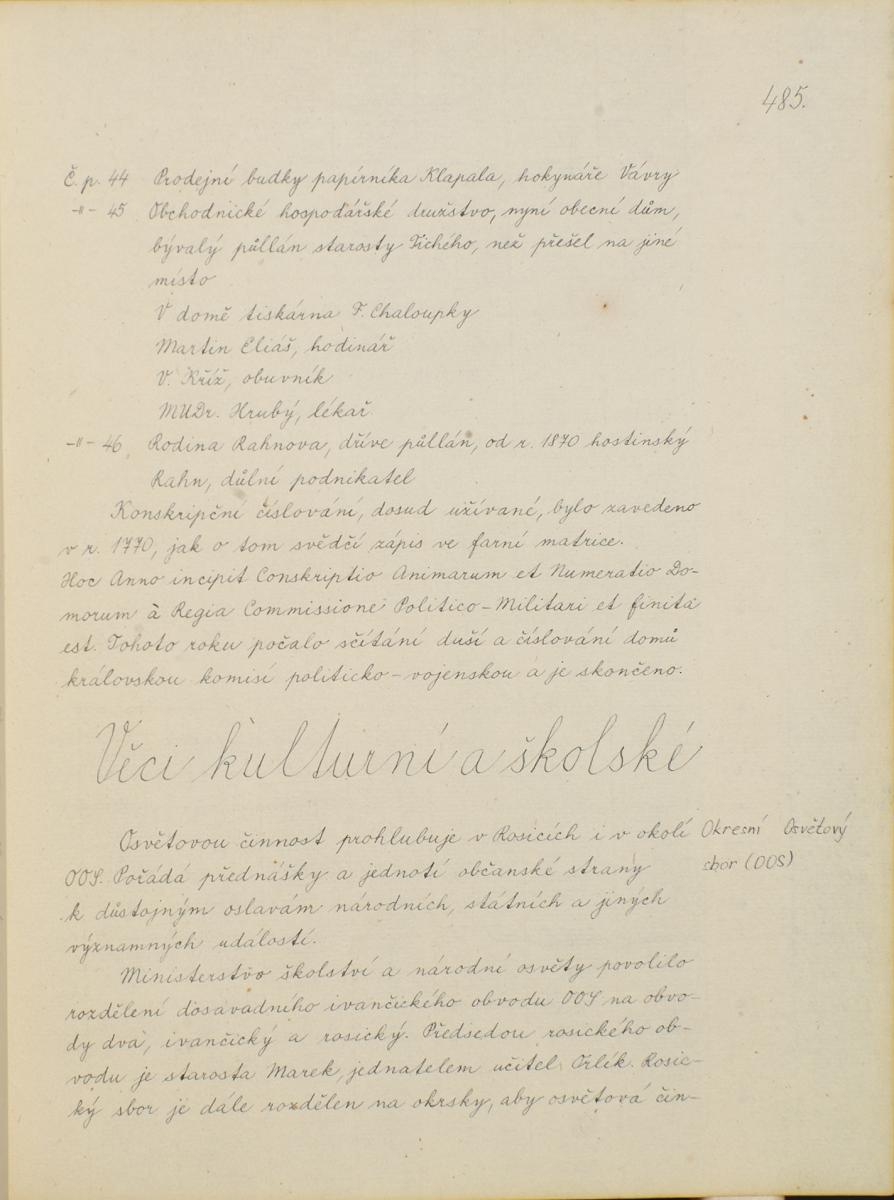 485.
Č. p. 44 Prodejní budky papírníka Klapala, hokynáře Vávry
-"- 45 Obchodnické hospodářské družstvo, nyní obecní dům,
bývalý půllán starosty Tichého, než přešel na jiné
místo
V domě tiskárna F. Chaloupky
Martin Eliáš, hodinář
V. Kříž, obuvník
MUDr. Hrubý, lékař
-"- 46 Rodina Rahnova, dříve půllán, od r. 1870 hostinský
Rahn, důlní podnikatel
Konskripční číslování, dosud užívané, bylo zavedeno
v r. 1770, jak o tom svědčí zápis ve farní matrice.
Hoc Anno incipit Conskriptio Animarum et Numeratio Do-
morum à Regia Commissione Politico-Militari et finita
est. Tohoto roku počalo sčítání duší a číslování domů
královskou komisí politicko-vojenskou a je skončeno.
Věci kulturní a školské
Osvětovou činnost prohlubuje v Rosicích i v okolí
OOS. Pořádá přednášky a jednotí občanské strany
k důstojným oslavám národních, státních a jiných
významných událostí.
Okresní Osvětový
sbor (OOS)
Ministerstvo školství a národní osvěty povolilo
rozdělení dosavadního ivančického obvodu OOS na obvo-
dy dva, ivančický a rosický. Předsedou rosického ob-
vodu je starosta Marek, jednatelem učitel Orlík. Rosic-
ký sbor je dále rozdělen na okrsky, aby osvětová čin-